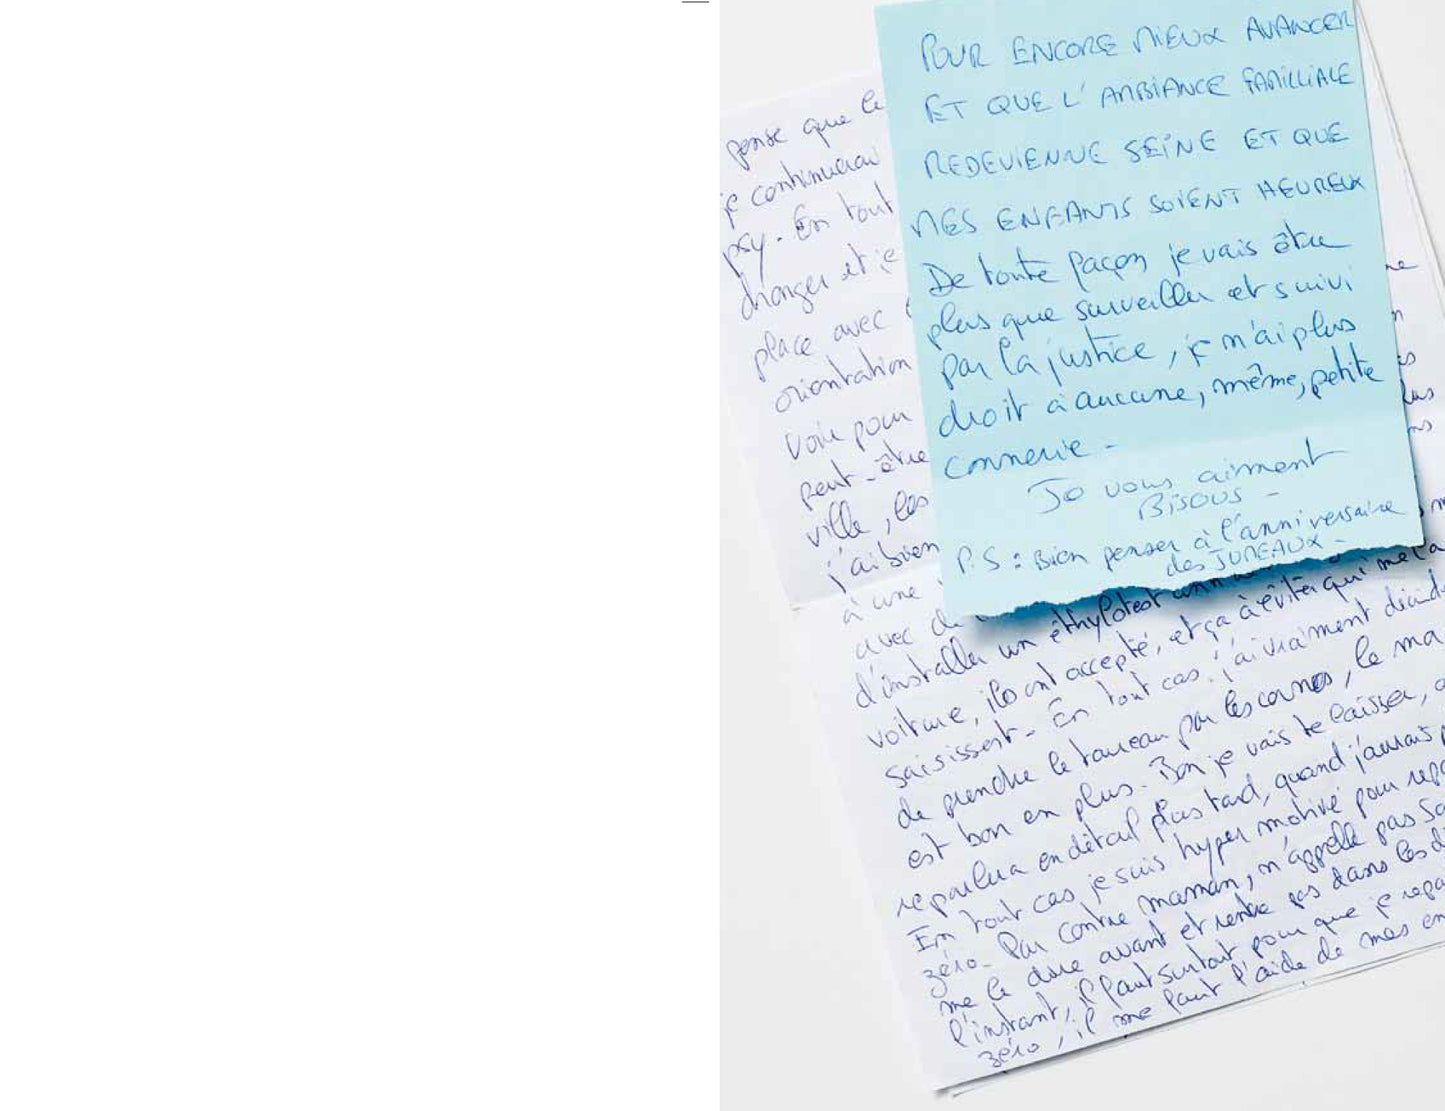 POUR ENCORE MIEUX AVANCER
ET QUE L'AMBIANCE FAMILLIALE
REDEVIENNE SEINE ET QUE
MES ENFANTS SOIENT HEUREUX
De toute façon je vais être
plus que surveiller et suivi
par la justice, je n'ai plus
droit à aucune, même, petite
connerie -
Je vous aiment
BISOUS -
P.S : Bien penser à l'anniversaire
des JUMEAUX -
pense que le
je continuerai
psy. En tout
changer et je
place avec
orientation
voir pour
peut-être
ville, les
j'ai bien
à une
avec
d'installer un éthylotest
voiture, ils ont accepté, et ça à éviter qui me la
saisissent - En tout cas j'ai vraiment décid
de prendre le taureau par les cornes, le ma
est bon en plus. Bon je vais te laisser,
reparlera en détail plus tard, quand j'aurais
En tout cas je suis hyper motivé pour repa
zéro. Par contre maman, n'appelle pas
me le dire avant et rentre pas dans les d
l'instant, il faut surtout pour que je repa
zéro, il me faut l'aide de mes en